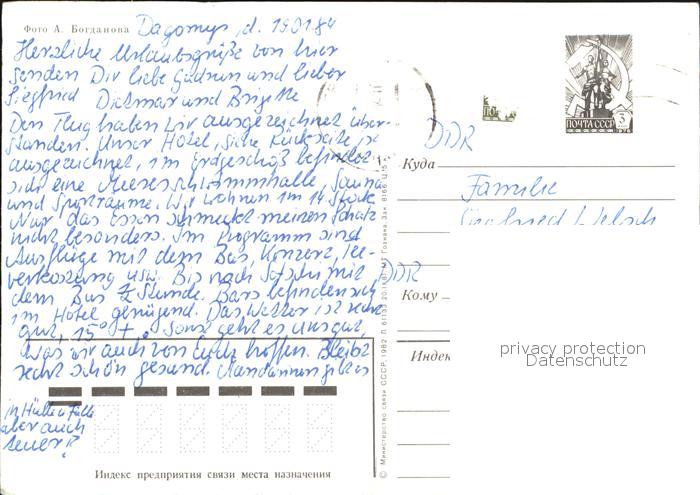 Фото А. Богданова
Dagomys, d. 190184
Herzliche Urlaubsgrüße von hier
senden Dir liebe Gudrun und lieber
Siegfried Dietmar und Brigitte
Den Flug haben wir ausgezeichnet über-
standen. Unser Hotel, siehe Rückseite, ist
ausgezeichnet, im Erdgeschoß befindet
sich eine Meeresschwimmhalle, Sauna
und Sporträume. Wir wohnen im 14. Stock
Nur das Essen schmeckt meinem Schatz
nicht besonders. Im Programm sind
Ausflüge mit dem Bus, Konzert, Tee-
verkostung usw. Bis nach Sotschi mit
dem Bus ½ Stunde. Bars befinden sich
im Hotel genügend. Das Wetter ist sehr
gut, 15° +. Sonst geht es uns gut,
was wir auch von Euch hoffen. Bleibt
recht schön gesund. Mandarinen gibt es
in Hülle u. Fülle
aber auch
teuer!
Индекс предприятия связи места назначения
© Министерство связи СССР, 1982
ПОЧТА СССР
3
DDR
Куда
Familie
Siegfried
DDR
Кому
Индек
privacy protection
Datenschutz